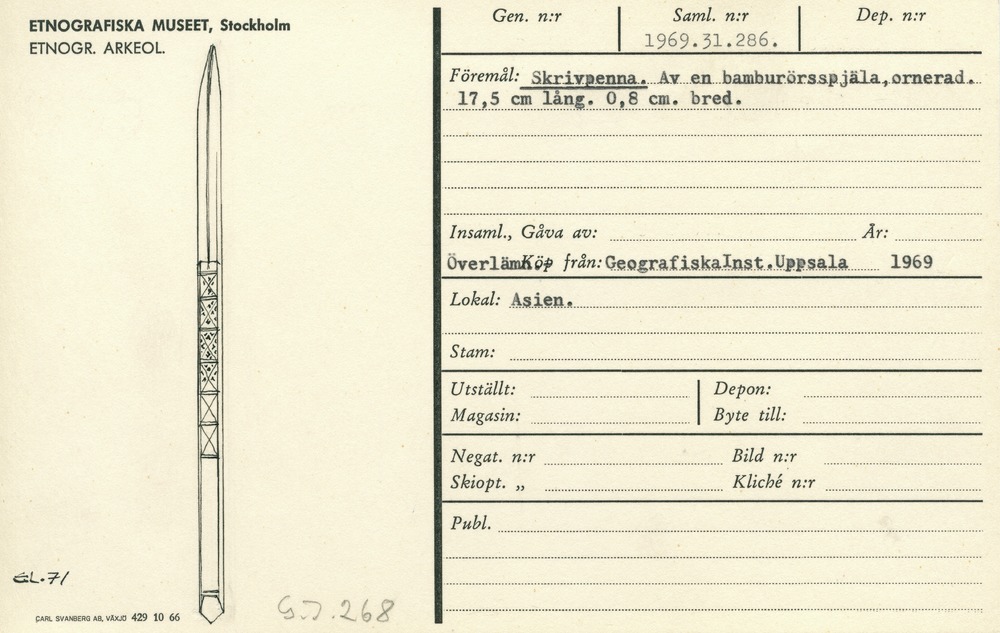 ETNOGRAFISKA MUSEET, Stockholm
ETNOGR. ARKEOL.
GL.71
CARL SVANBERG AB, VÄXJÖ 429 10 66
G.I.268
Gen. n:r
Saml. n:r
1969.31.286.
Dep. n:r
Föremål: Skrivpenna. Av en bamburörsspjäla,ornerad.
17,5 cm lång. 0,8 cm. bred.
Insaml., Gåva av: År:
Överlämn. Köp från: GeografiskaInst.Uppsala 1969
Lokal: Asien.
Stam:
Utställt: Depon:
Magasin: Byte till:
Negat. n:r Bild n:r
Skiopt. „ Kliché n:r
Publ.